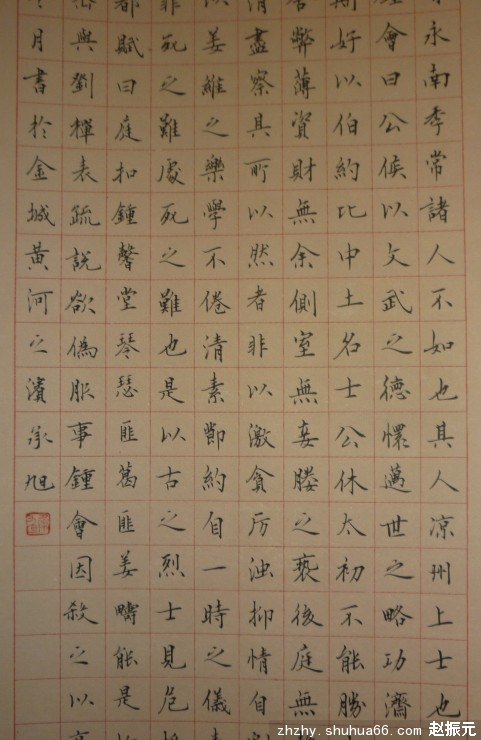 永南季常諸人不如也其人凉州上士也
會曰公侯以文武之德懷邁世之略功濟
好以伯約比中土名士公休太初不能勝
弊薄資財無余側室無妾媵之褻後庭無
盡察其所以然者非以激貪厉浊抑情自
姜維之樂學不倦清素節約自一時之儀
死之難處死之難也是以古之烈士見危
都賦曰庭扣鍾磬堂琴瑟匪葛匪姜疇能是
與劉禪表疏說欲偽服事鍾會因殺之以
月書於金城黃河之濱承旭
zhzhy.shuhua66.com 赵振元